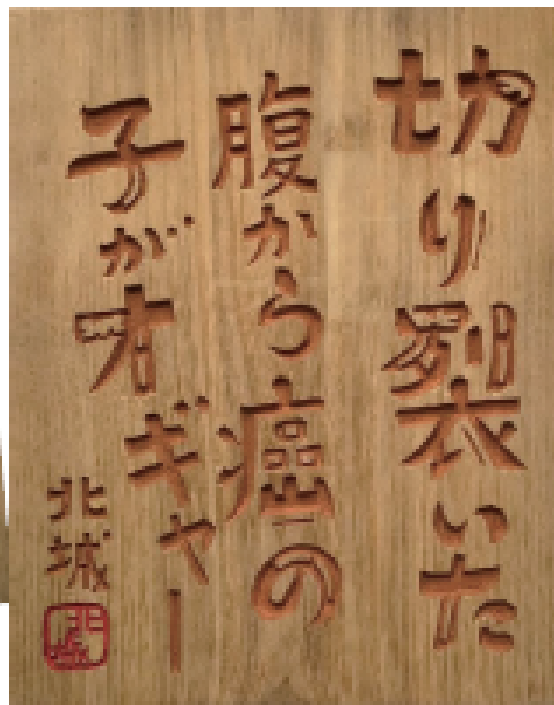 切り裂いた
腹から癌の
子がオギャー
北城